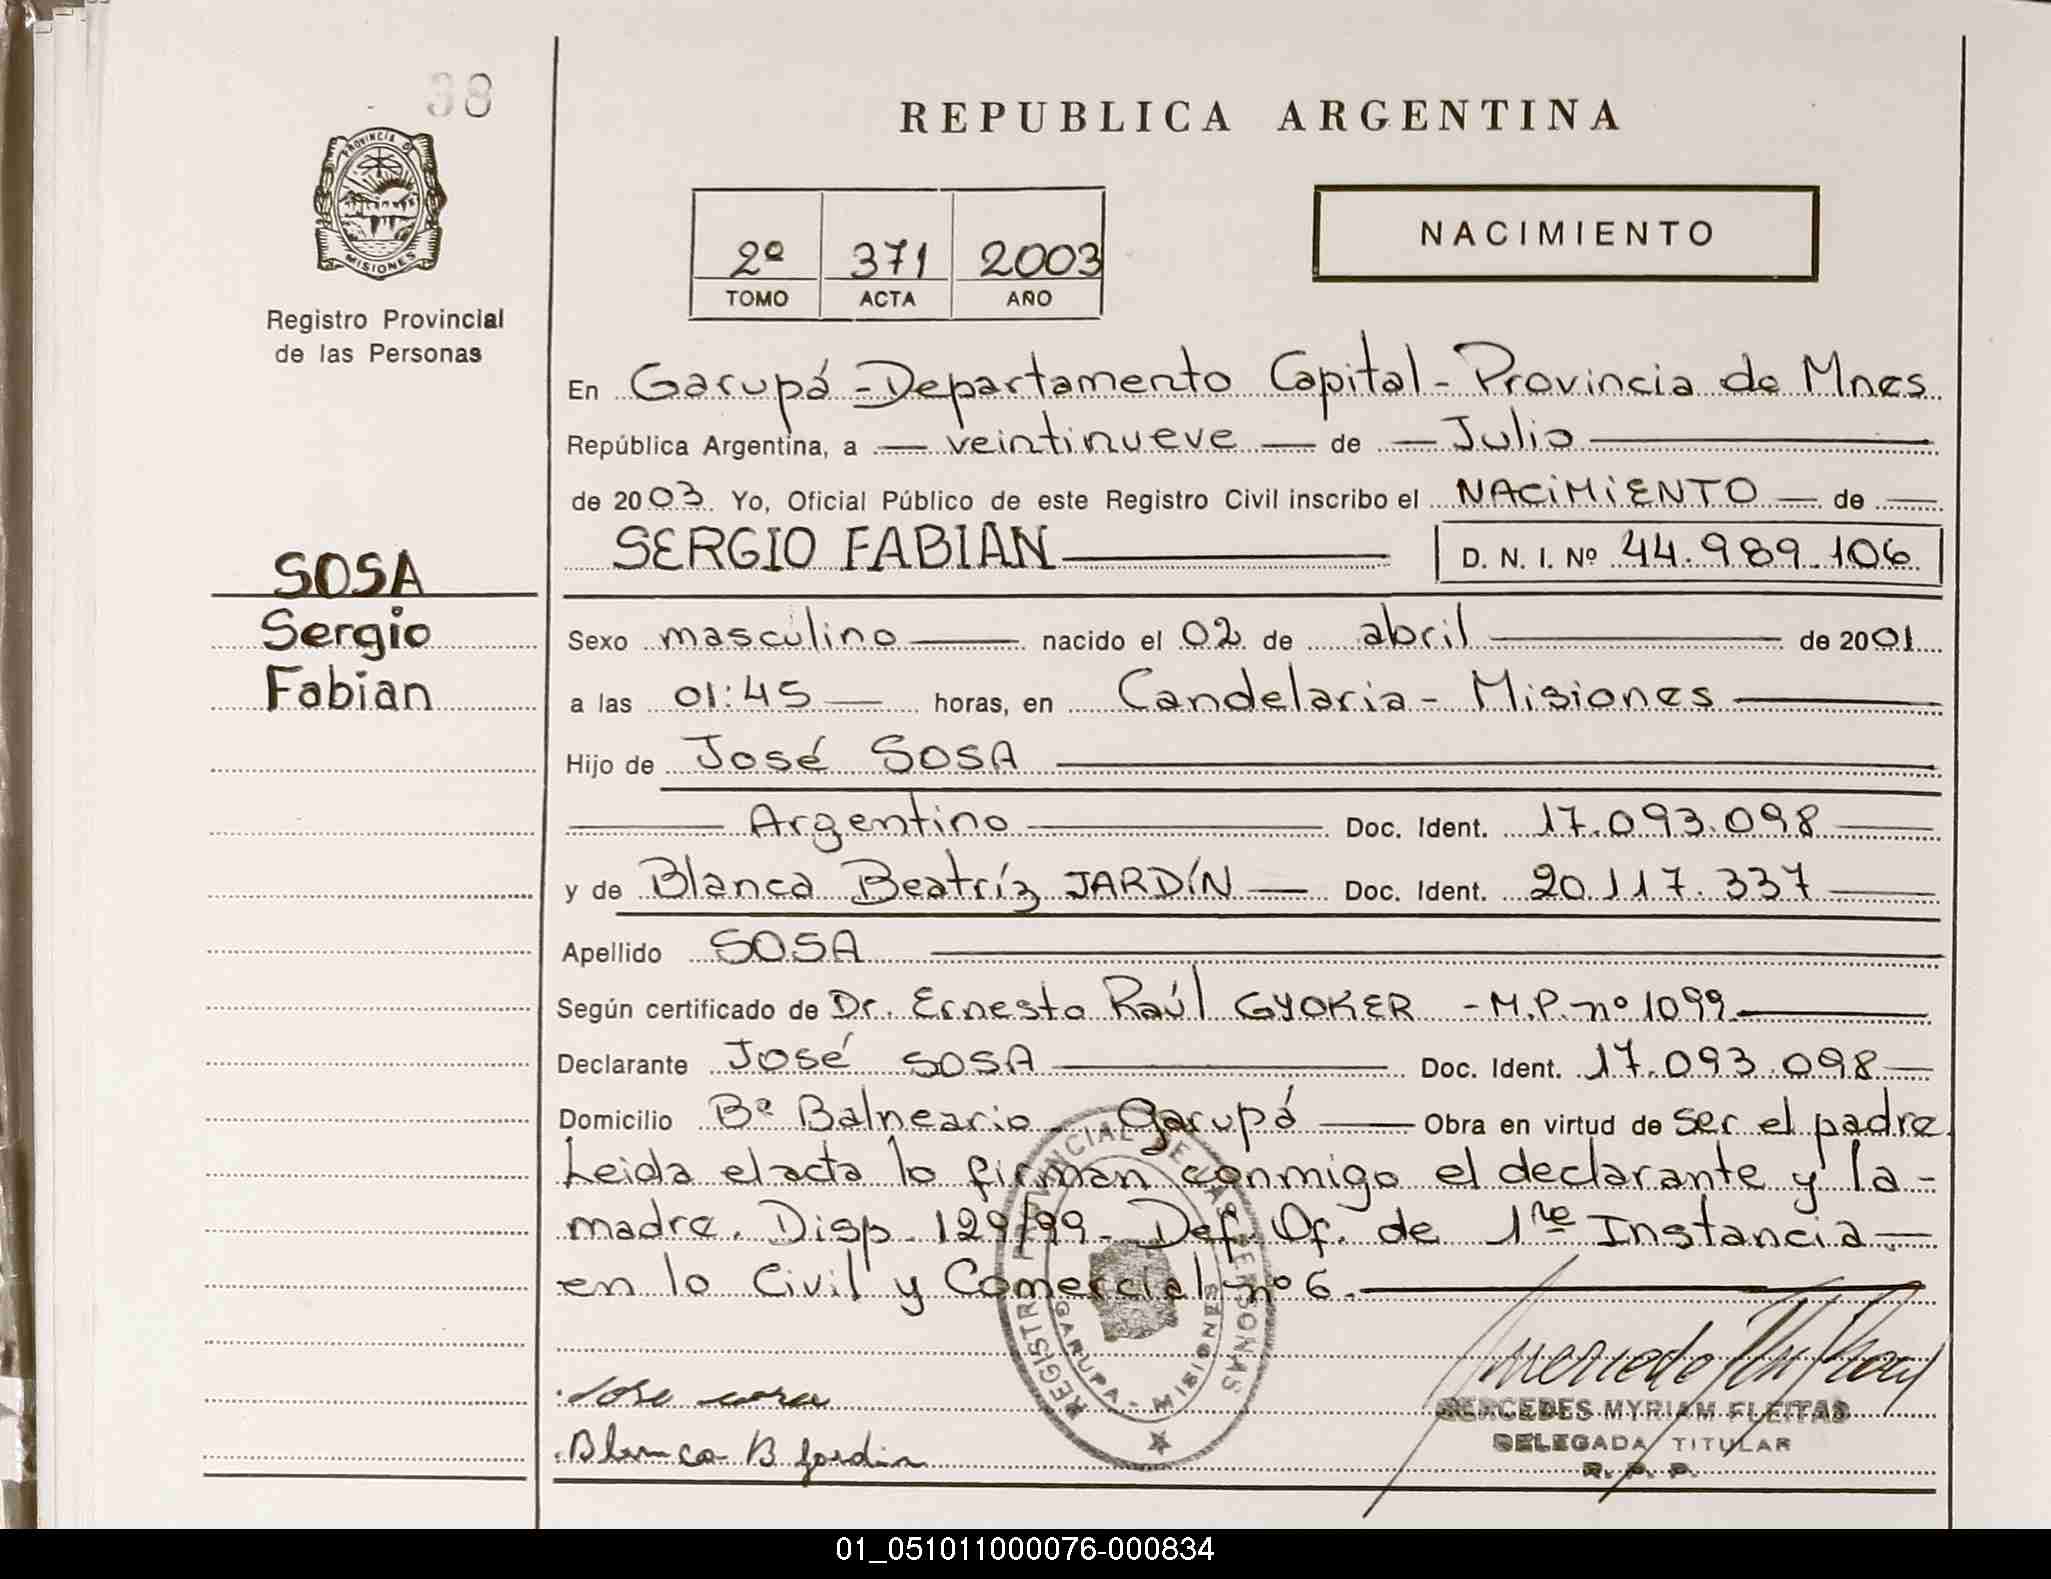 38
REPUBLICA ARGENTINA
PROVINCIA DE
MISIONES
Registro Provincial
de las Personas
2º 371 2003
TOMO ACTA AÑO
NACIMIENTO
En Garupá - Departamento Capital - Provincia de Mnes
República Argentina, a — veintinueve — de — Julio —
de 2003. Yo, Oficial Público de este Registro Civil inscribo el NACIMIENTO — de —
SERGIO FABIAN — D. N. I. Nº 44.989.106
SOSA
Sergio
Fabian
Sexo masculino — nacido el 02 de abril — de 2001
a las 01:45 — horas, en Candelaria - Misiones —
Hijo de José SOSA —
— Argentino — Doc. Ident. 17.093.098 —
y de Blanca Beatríz JARDÍN — Doc. Ident. 20.117.337 —
Apellido SOSA —
Según certificado de Dr. Ernesto Raúl GYOKER - M.P. nº 1099 —
Declarante José SOSA — Doc. Ident. 17.093.098 —
Domicilio Bº Balneario - Garupá — Obra en virtud de ser el padre
Leida el acta lo firman conmigo el declarante y la -
madre. Disp. 129/99 - Def. Of. de 1re Instancia —
en lo Civil y Comercial nº 6. —
REGISTRO PROVINCIAL DE LAS PERSONAS
GARUPA - MISIONES
Jose sosa
Blanca B Jardin
MERCEDES MYRIAM FLEITAS
DELEGADA TITULAR
R. P. P.
01_051011000076-000834